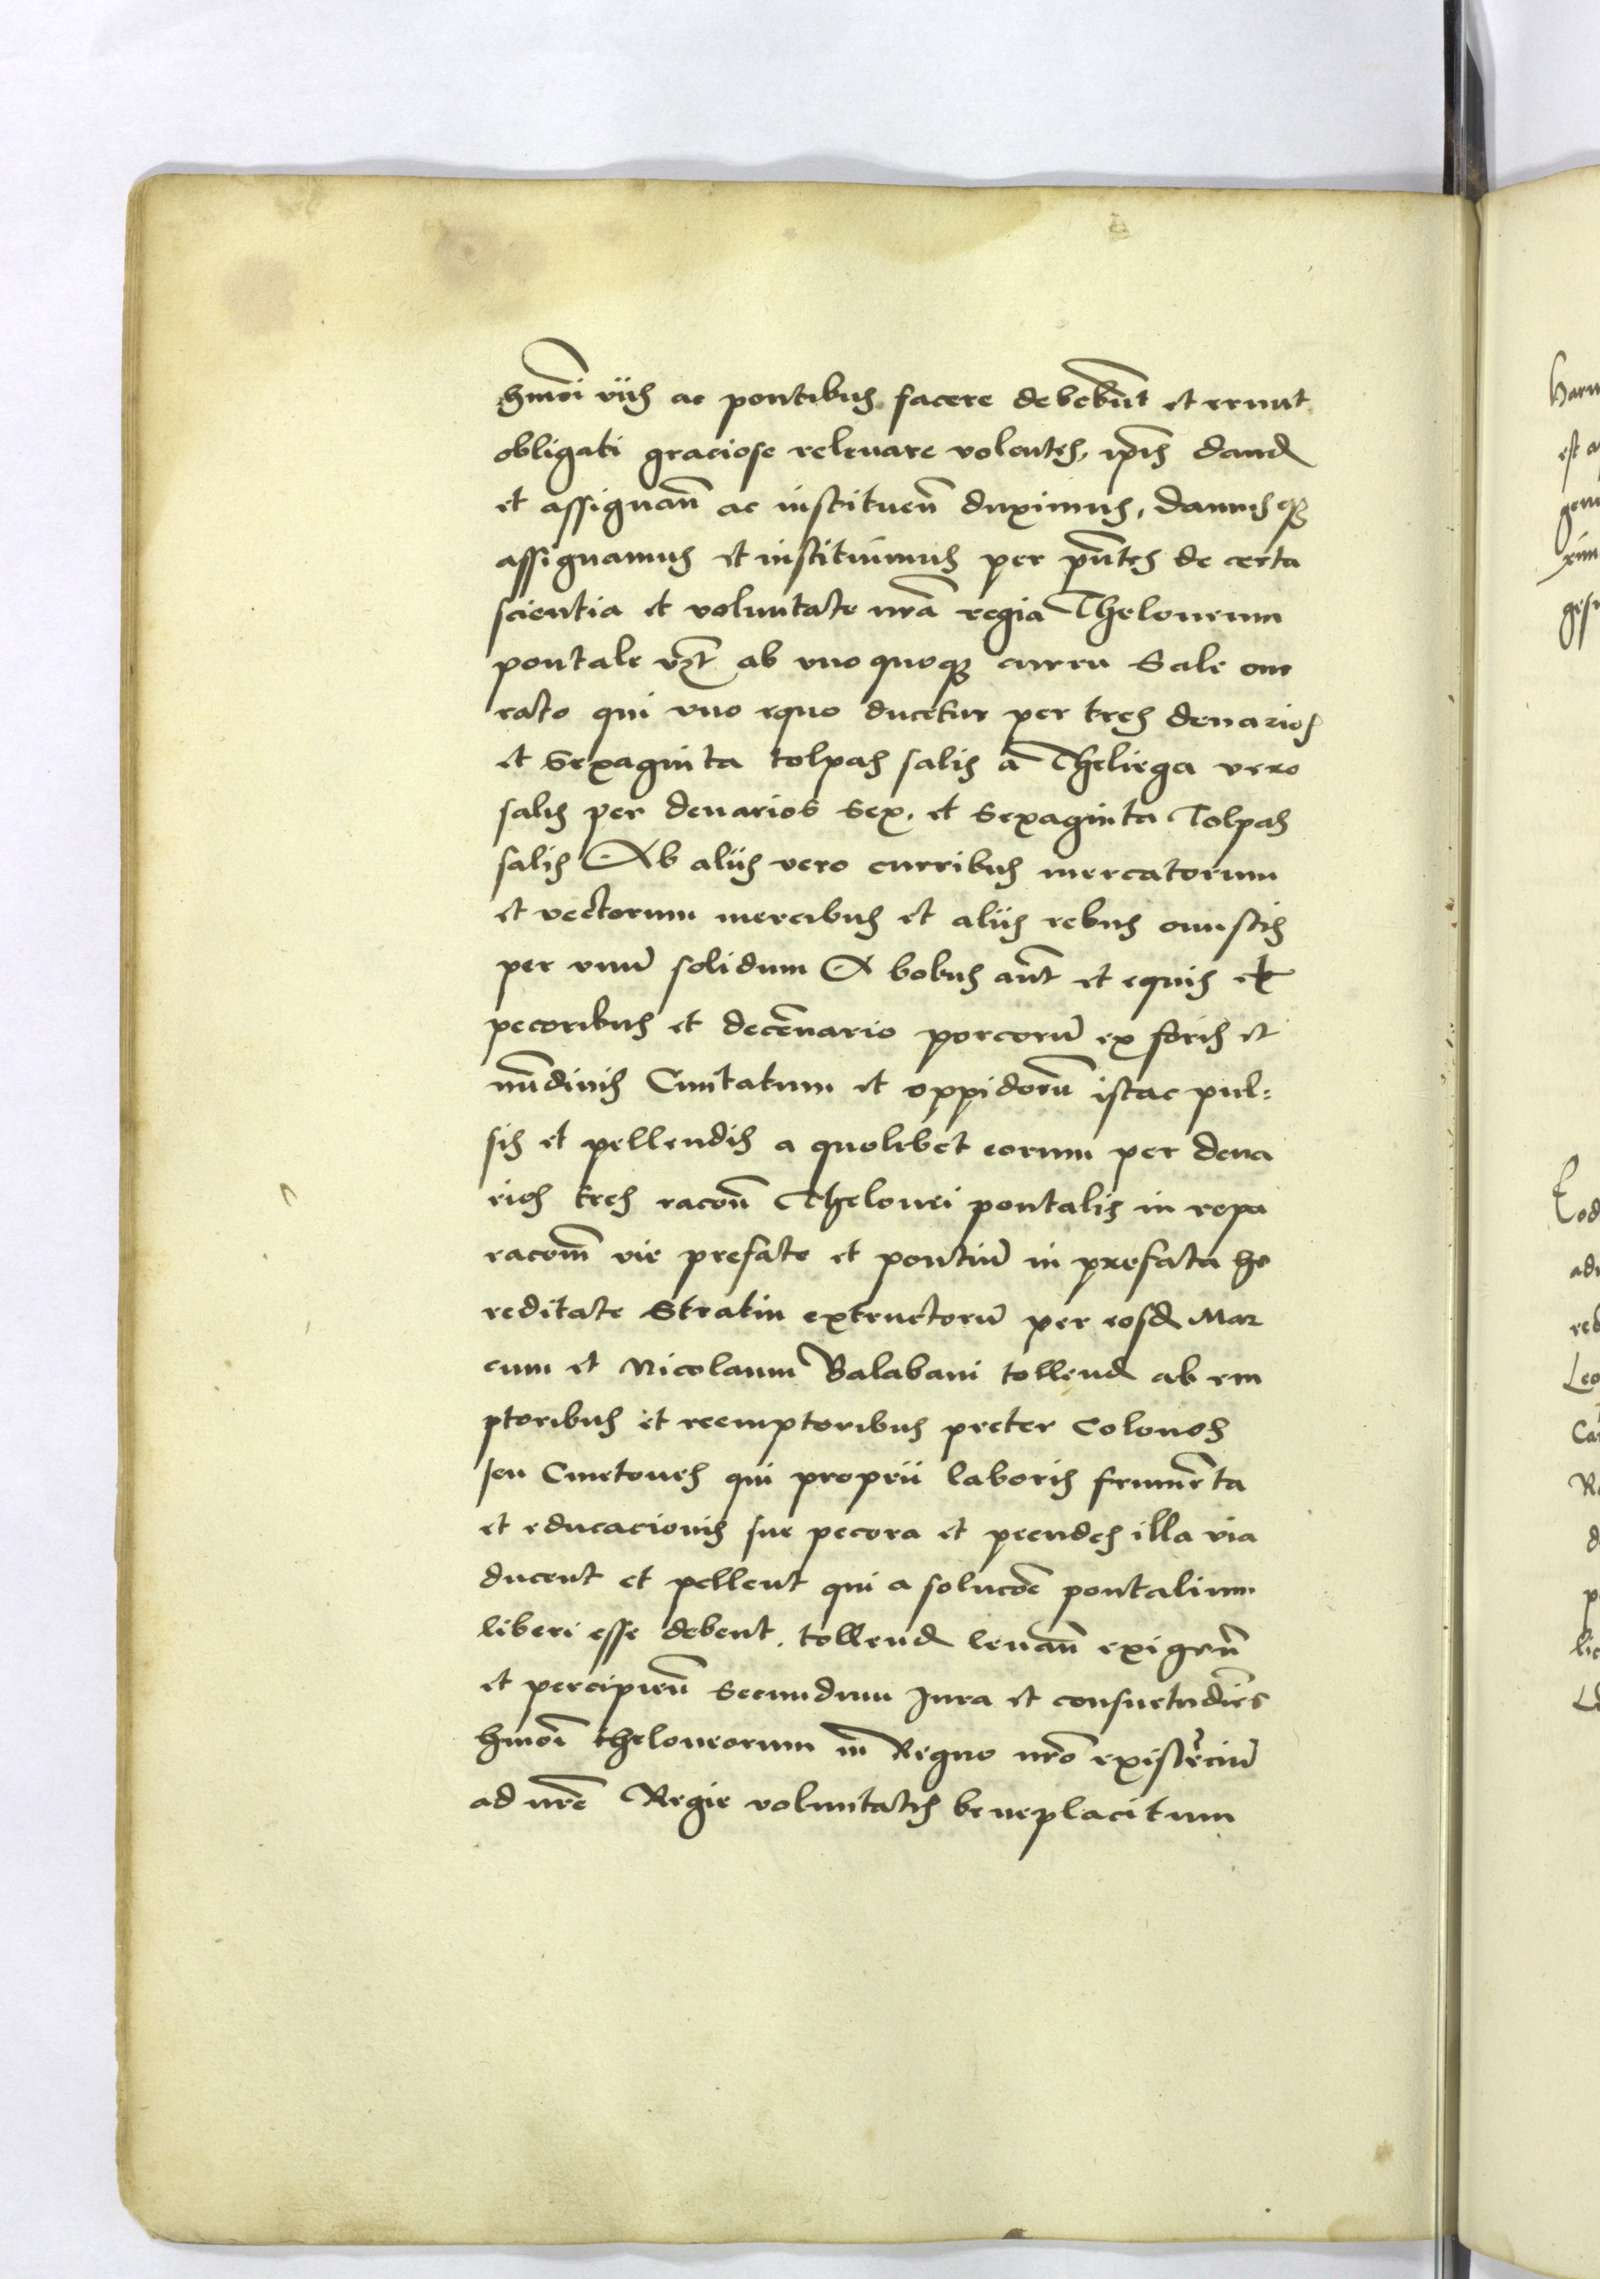 hmoi viis ac pontibus facere debebunt et erunt
obligati graciose relevare volentes, ipis dand
et assignan ac instituen duximus, damusq
assignamus et instituimus per pntes de certa
scientia et voluntate nra regia Theloneum
pontale vzt ab vno quoq curru Sale one
rato qui vno equo ducetur per tres denarios
et Sexaginta tolpas salis a Theliega vero
salis per denarios Sex. et Sexaginta Tolpas
salis Ab aliis vero curribus mercatorum
et vectorum mercibus et aliis rebus onustis
per vnu solidum A bobus aut et equis et
pecoribus et decenario porcoru ex foris et
nudinis Civitatum et oppidoru istac pul:
sis et pellendis a quolibet eorum per dena
rios tres racon Thelonei pontalis in repa
racom vie prefate et pontiu in prefata he
reditate Stratin extructoru per eosd Mar
cum et Nicolaum Balabani tollend ab em
ptoribus et reemptoribus preter Colonos
seu Cmetones qui proprii laboris frumeta
et educacionis sue pecora et pecudes illa via
ducent et pellent qui a solucoe pontalium
liberi esse debent. tollend levan exigen
et percipien Secundum Jura et consuetudies
hmoi theloneorum in Regno nro existeciu
ad nre Regie voluntatis beneplacitum